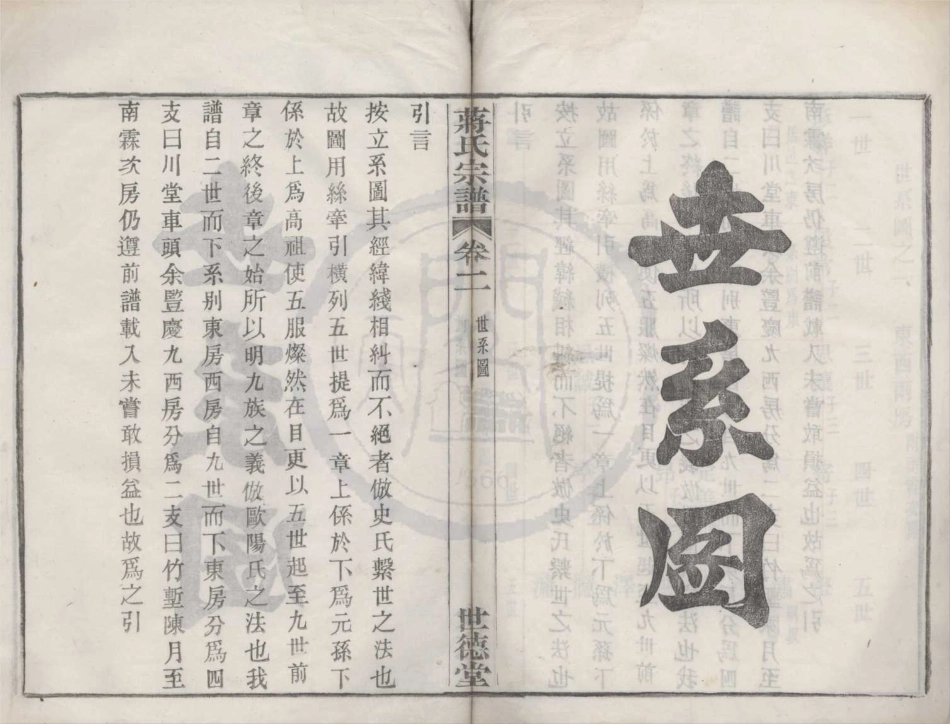 世系圖
蔣氏宗譜
卷二
世系圖
世德堂
引言
按立系圖其經緯綫相糾而不絕者倣史氏繫世之法也
故圖用絲牽引橫列五世提爲一章上係於下爲元孫下
係於上爲高祖使五服燦然在目更以五世起至九世前
章之終後章之始所以明九族之義倣歐陽氏之法也我
譜自二世而下系别東房西房自九世而下東房分爲四
支曰川堂車頭余暨慶九西房分爲二支曰竹塹陳月至
南霖次房仍遵前譜載入未嘗敢損益也故爲之引